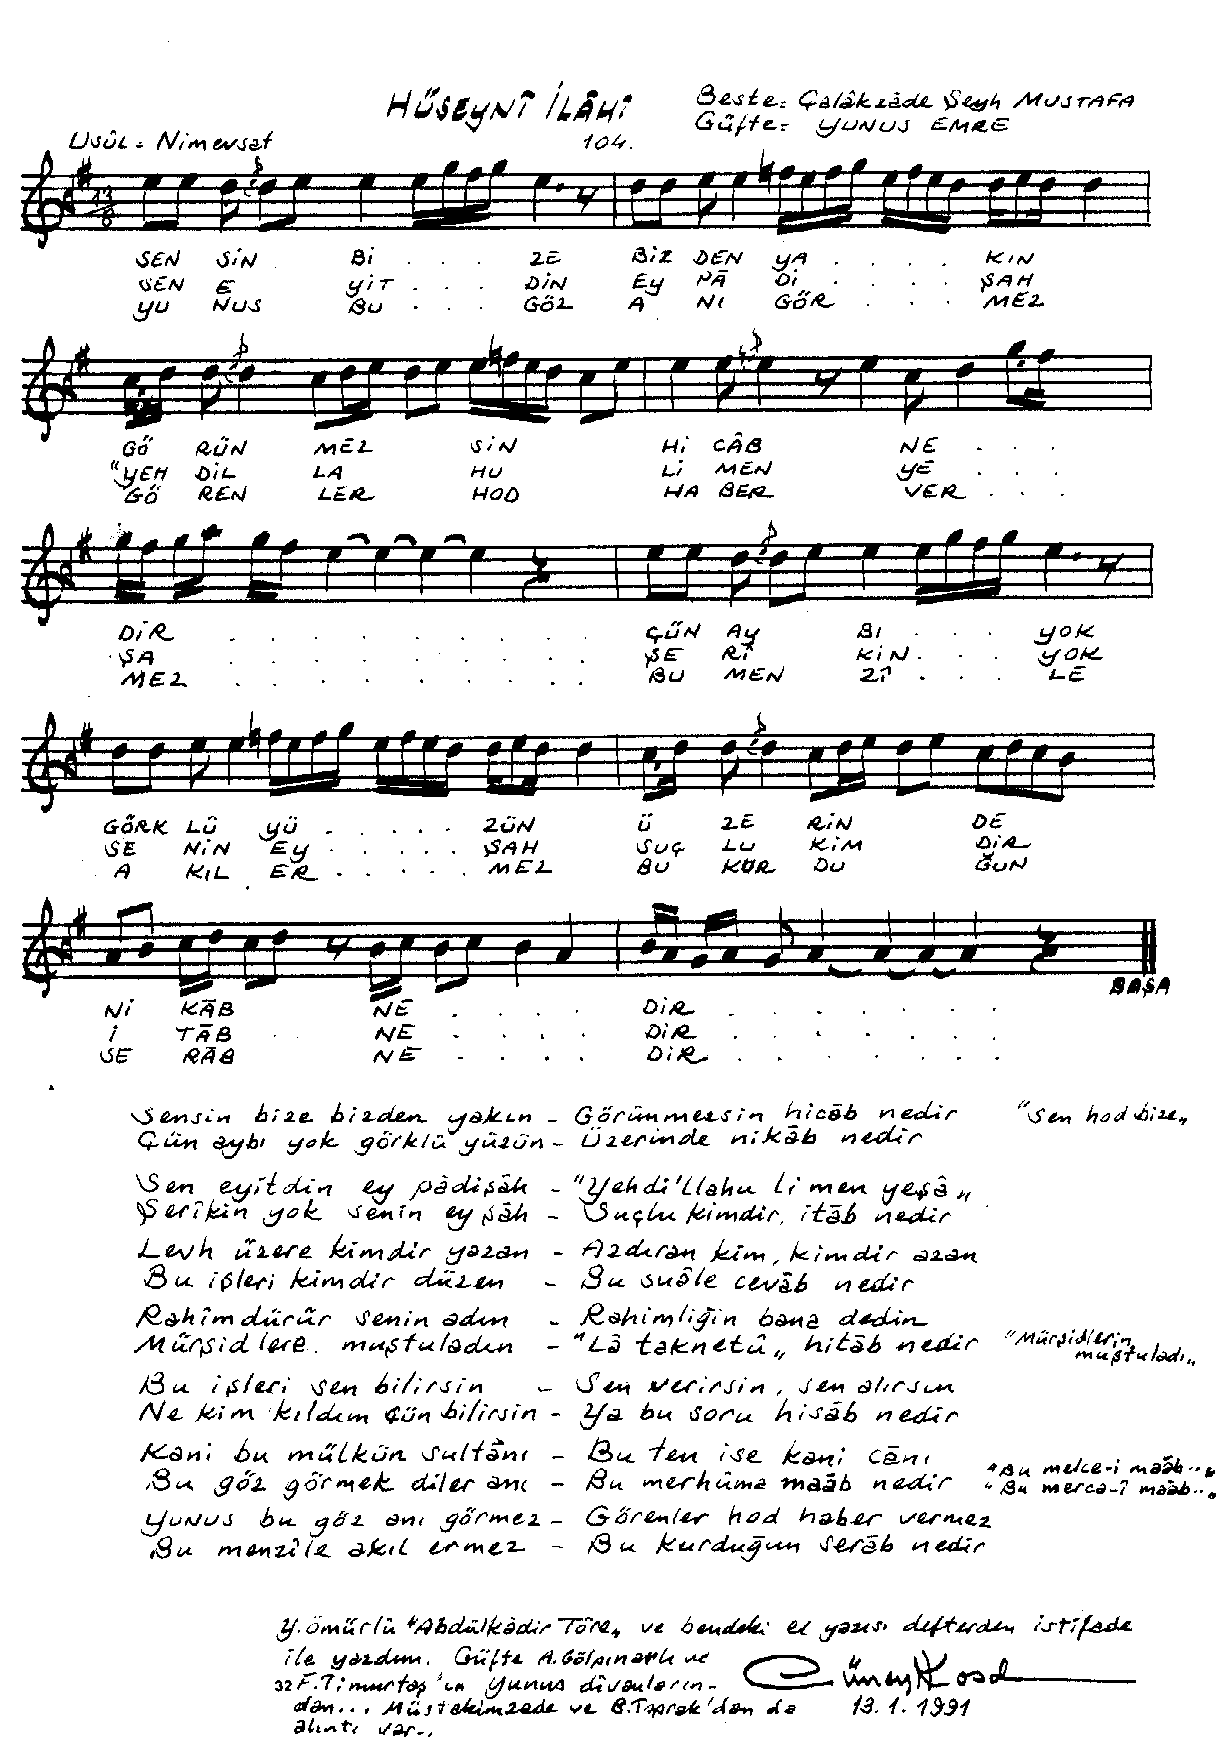 HÜSEYNÎ İLÂHİ
Beste: Çalâkzâde Şeyh MUSTAFA
Güfte: YUNUS EMRE
Usûl: Nimevsat
104.
13
8
SEN SİN Bİ . . . ZE BİZ DEN YA . . . . KIN
SEN E YİT . . . DİN EY PÂ Dİ . . . . ŞAH
YU NUS BU . . . GÖZ A NI GÖR . . . MEZ
GÖ RÜN MEZ SİN Hİ CÂB NE . . .
"YEH DİL LA HU Lİ MEN YE . . .
GÖ REN LER HOD HA BER VER . . .
DİR . . . . . . . . . ÇÜN AY BI . . . YOK
ŞA . . . . . . . . . ŞE RÎ KİN . . . YOK
MEZ . . . . . . . . . BU MEN ZÎ . . . LE
GÖRK LÜ YÜ . . . . . ZÜN Ü ZE RİN DE
SE NİN EY . . . . . ŞAH SUÇ LU KİM DİR
A KIL ER . . . . . MEZ BU KUR DU ĞUN
Nİ KÂB NE . . . . DİR . . . . . . .
İ TÂB NE . . . . DİR . . . . . . .
SE RÂB NE . . . . DİR . . . . . . .
BAŞA
Sensin bize bizden yakın - Görünmezsin hicâb nedir "Sen hod bize"
Çün aybı yok görklü yüzün - Üzerinde nikâb nedir
Sen eyitdin ey pâdişâh - "Yehdi'llahu li men yeşâ"
Şerîkin yok senin ey şâh - Suçlu kimdir, itâb nedir
Levh üzere kimdir yazan - Azdıran kim, kimdir azan
Bu işleri kimdir düzen - Bu suâle cevâb nedir
Rahîmdürür senin adın - Rahimliğin bana dedin
Mürşidlere muştuladın - "Lâ taknetû" hitâb nedir "Mürşidlerin
muştuladı"
Bu işleri sen bilirsin - Sen verirsin, sen alırsın
Ne kim kıldım çün bilirsin - Ya bu soru hisâb nedir
Kani bu mülkün sultânı - Bu ten ise kani cânı
Bu göz görmek diler anı - Bu merhûma maâb nedir "Bu melce-i maâb..."
"Bu merca-î maâb..."
YUNUS bu göz anı görmez - Görenler hod haber vermez
Bu menzile akıl ermez - Bu kurduğun serâb nedir
Y. Ömürlü "Abdülkâdir Töre" ve bendeki el yazısı defterden istifade
ile yazdım. Güfte A. Gölpınarlı ve
32 F. Timurtaş'ın Yunus divanların-
dan... Müstakimzade ve B. Toprak'dan da
alıntı var..
13.1.1991